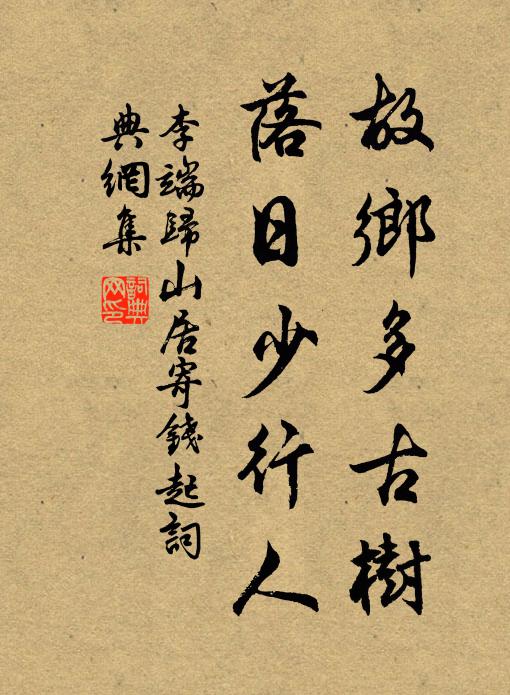 故鄉多古樹
落日少行人
李端歸山居寄錢起詞
典網集
詞典
网印